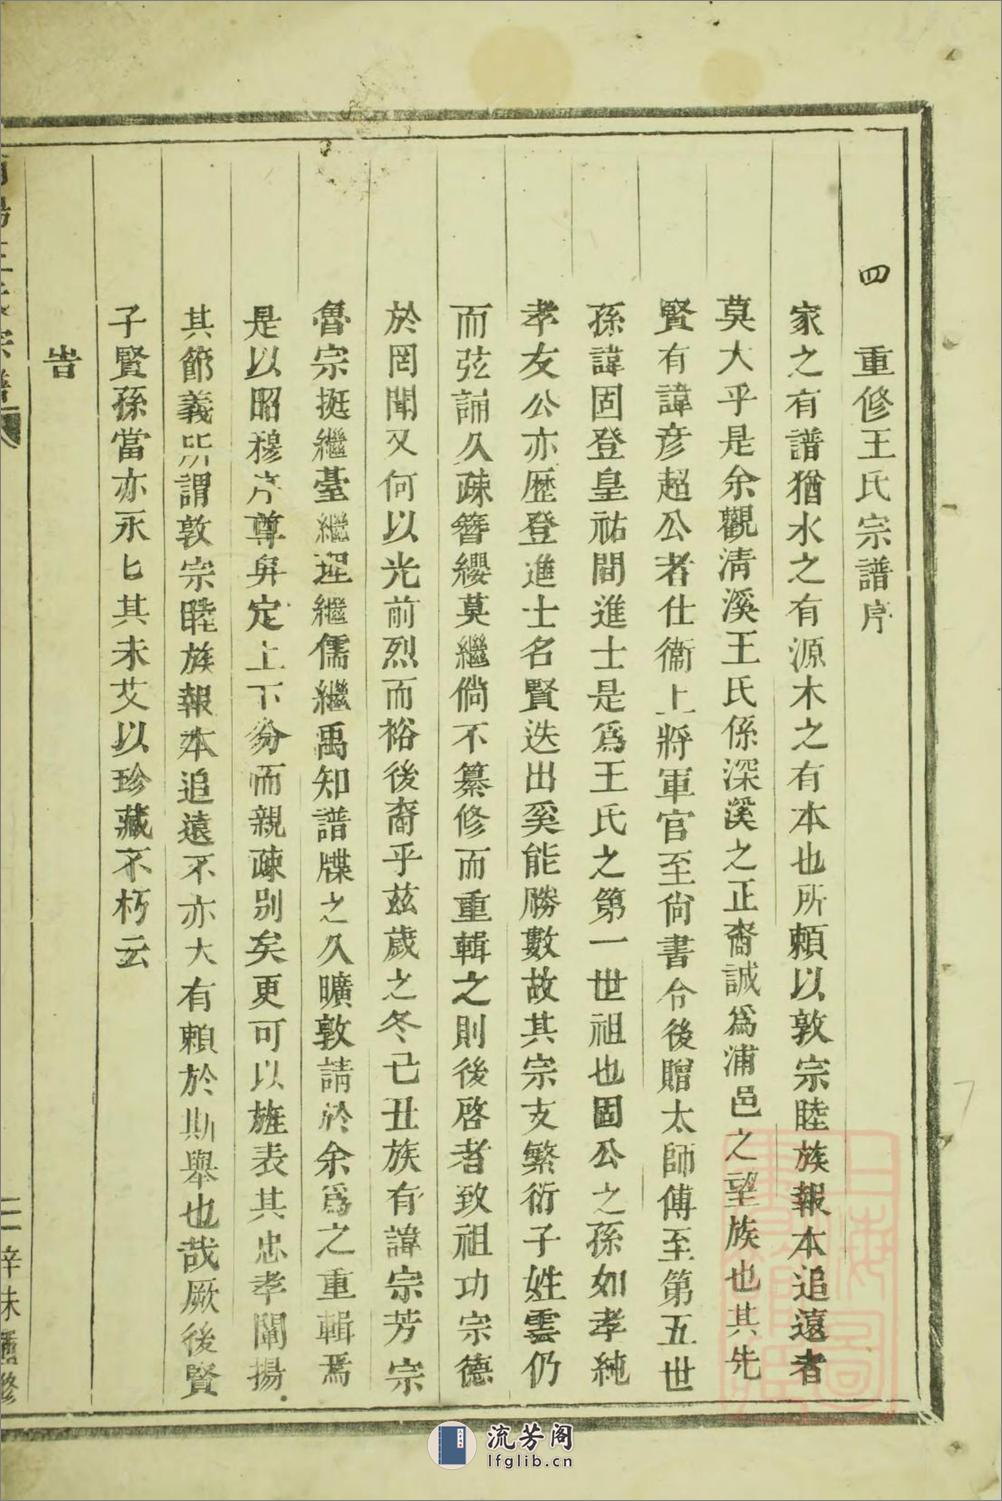 四 重修王氏宗譜序
家之有譜猶水之有源木之有本也所賴以敦宗睦族報本追遠者
莫大乎是余觀清溪王氏係深溪之正裔誠為浦邑之望族也其先
賢有諱彥超公者仕衞上將軍官至尙書令後贈太師傅至第五世
孫諱固登皇祐間進士是為王氏之第一世祖也固公之孫如孝純
孝友公亦歷登進士名賢迭出奚能勝數故其宗支繁衍子姓雲仍
而弦誦久疎簪纓莫繼倘不纂修而重輯之則後啓者致祖功宗德
於罔聞又何以光前烈而裕後裔乎茲歲之冬乙丑族有諱宗芳宗
魯宗挺繼臺繼理繼儒繼禹知譜牒之久曠敦請於余為之重輯焉
是以昭穆序尊卑定上下分而親疎別矣更可以旌表其忠孝闡揚
其節義所謂敦宗睦族報本追遠不亦大有賴於斯舉也哉厥後賢
子賢孫當亦永匕其未艾以珍藏不朽云
旹
王氏宗譜
二 辛未重修
流芳阁
lfglib.cn